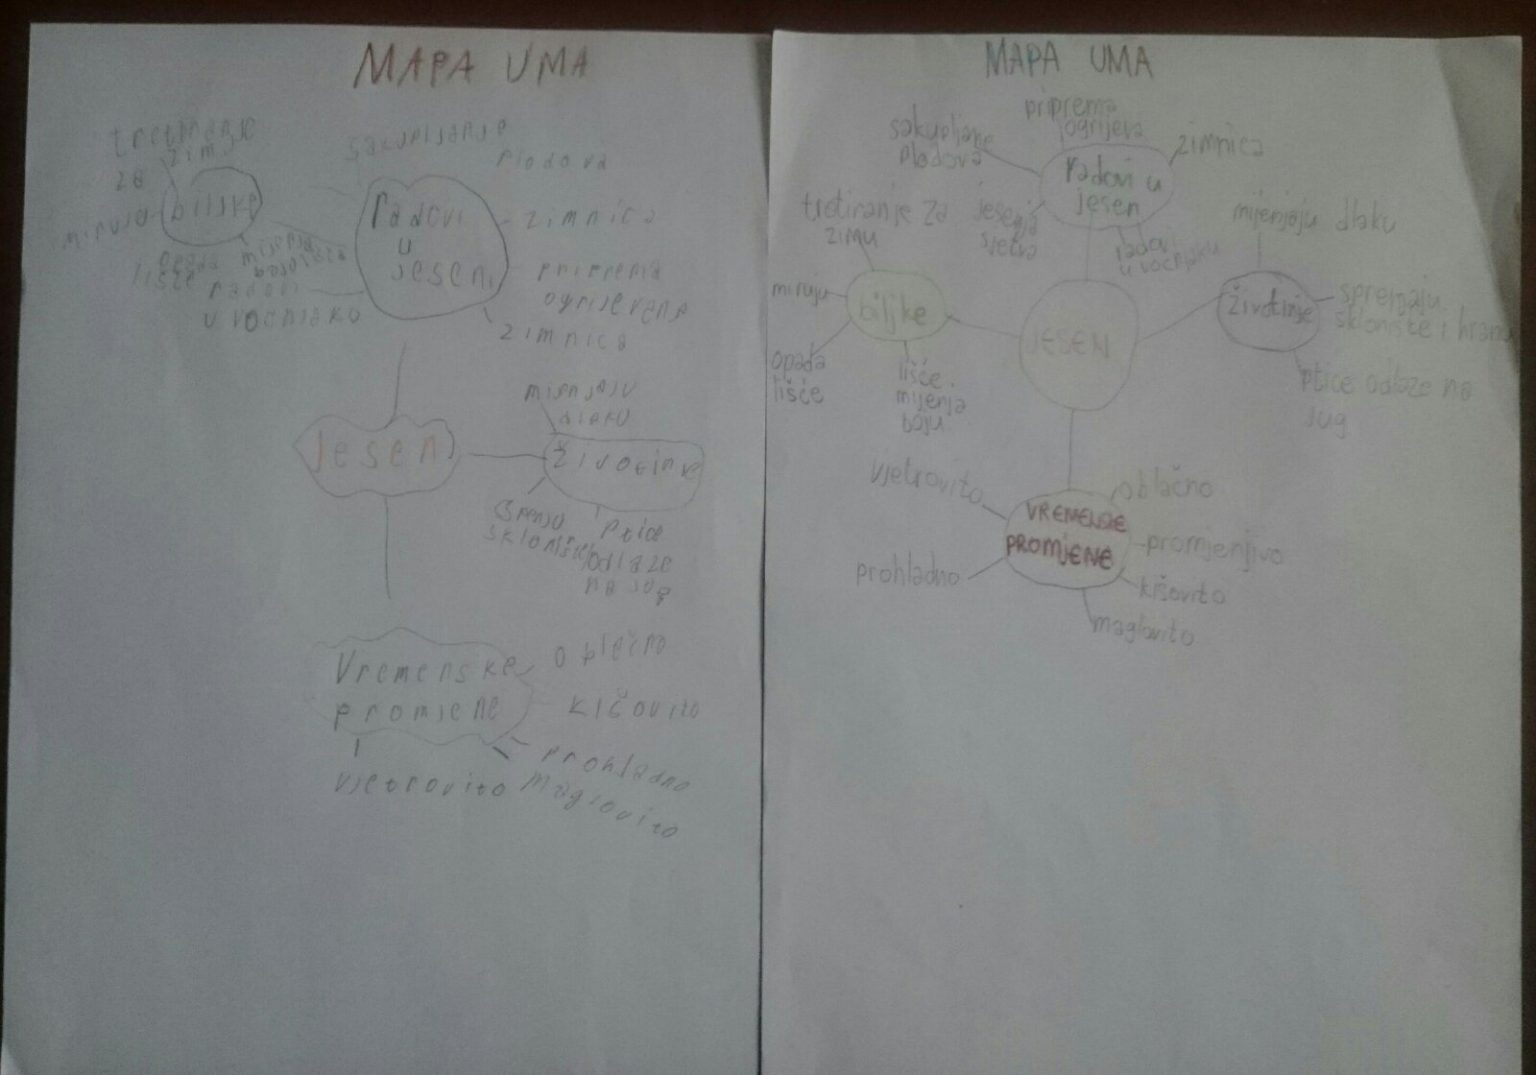 MAPA UMA
za
zimu
miruju
biljke
opada
lišće
mijenja
radovi
u voćnjaku
sakupljanje
plodova
radovi
u
jeseni
zimnica
priprema
zimnica
Jesen
mijenjaju
životinje
sklonište
ptice
odlaze
na jug
Vremenske
promjene
oblačno
kišovito
prohladno
maglovito
vjetrovito
MAPA UMA
sakupljanje
plodova
priprema
ogrijeva
zimnica
radovi u
jesen
jesenja
sjetva
radovi
u voćnjaku
trotiranje za
zimu
miruju
biljke
opada
lišće
lišće
mijenja
boju
JESEN
mijenjaju dlaku
životinje
spremaju
sklonište i hranu
ptice odlaze na
jug
vjetrovito
oblačno
VREMENSKE
PROMJENE
promjenjivo
prohladno
kišovito
maglovito